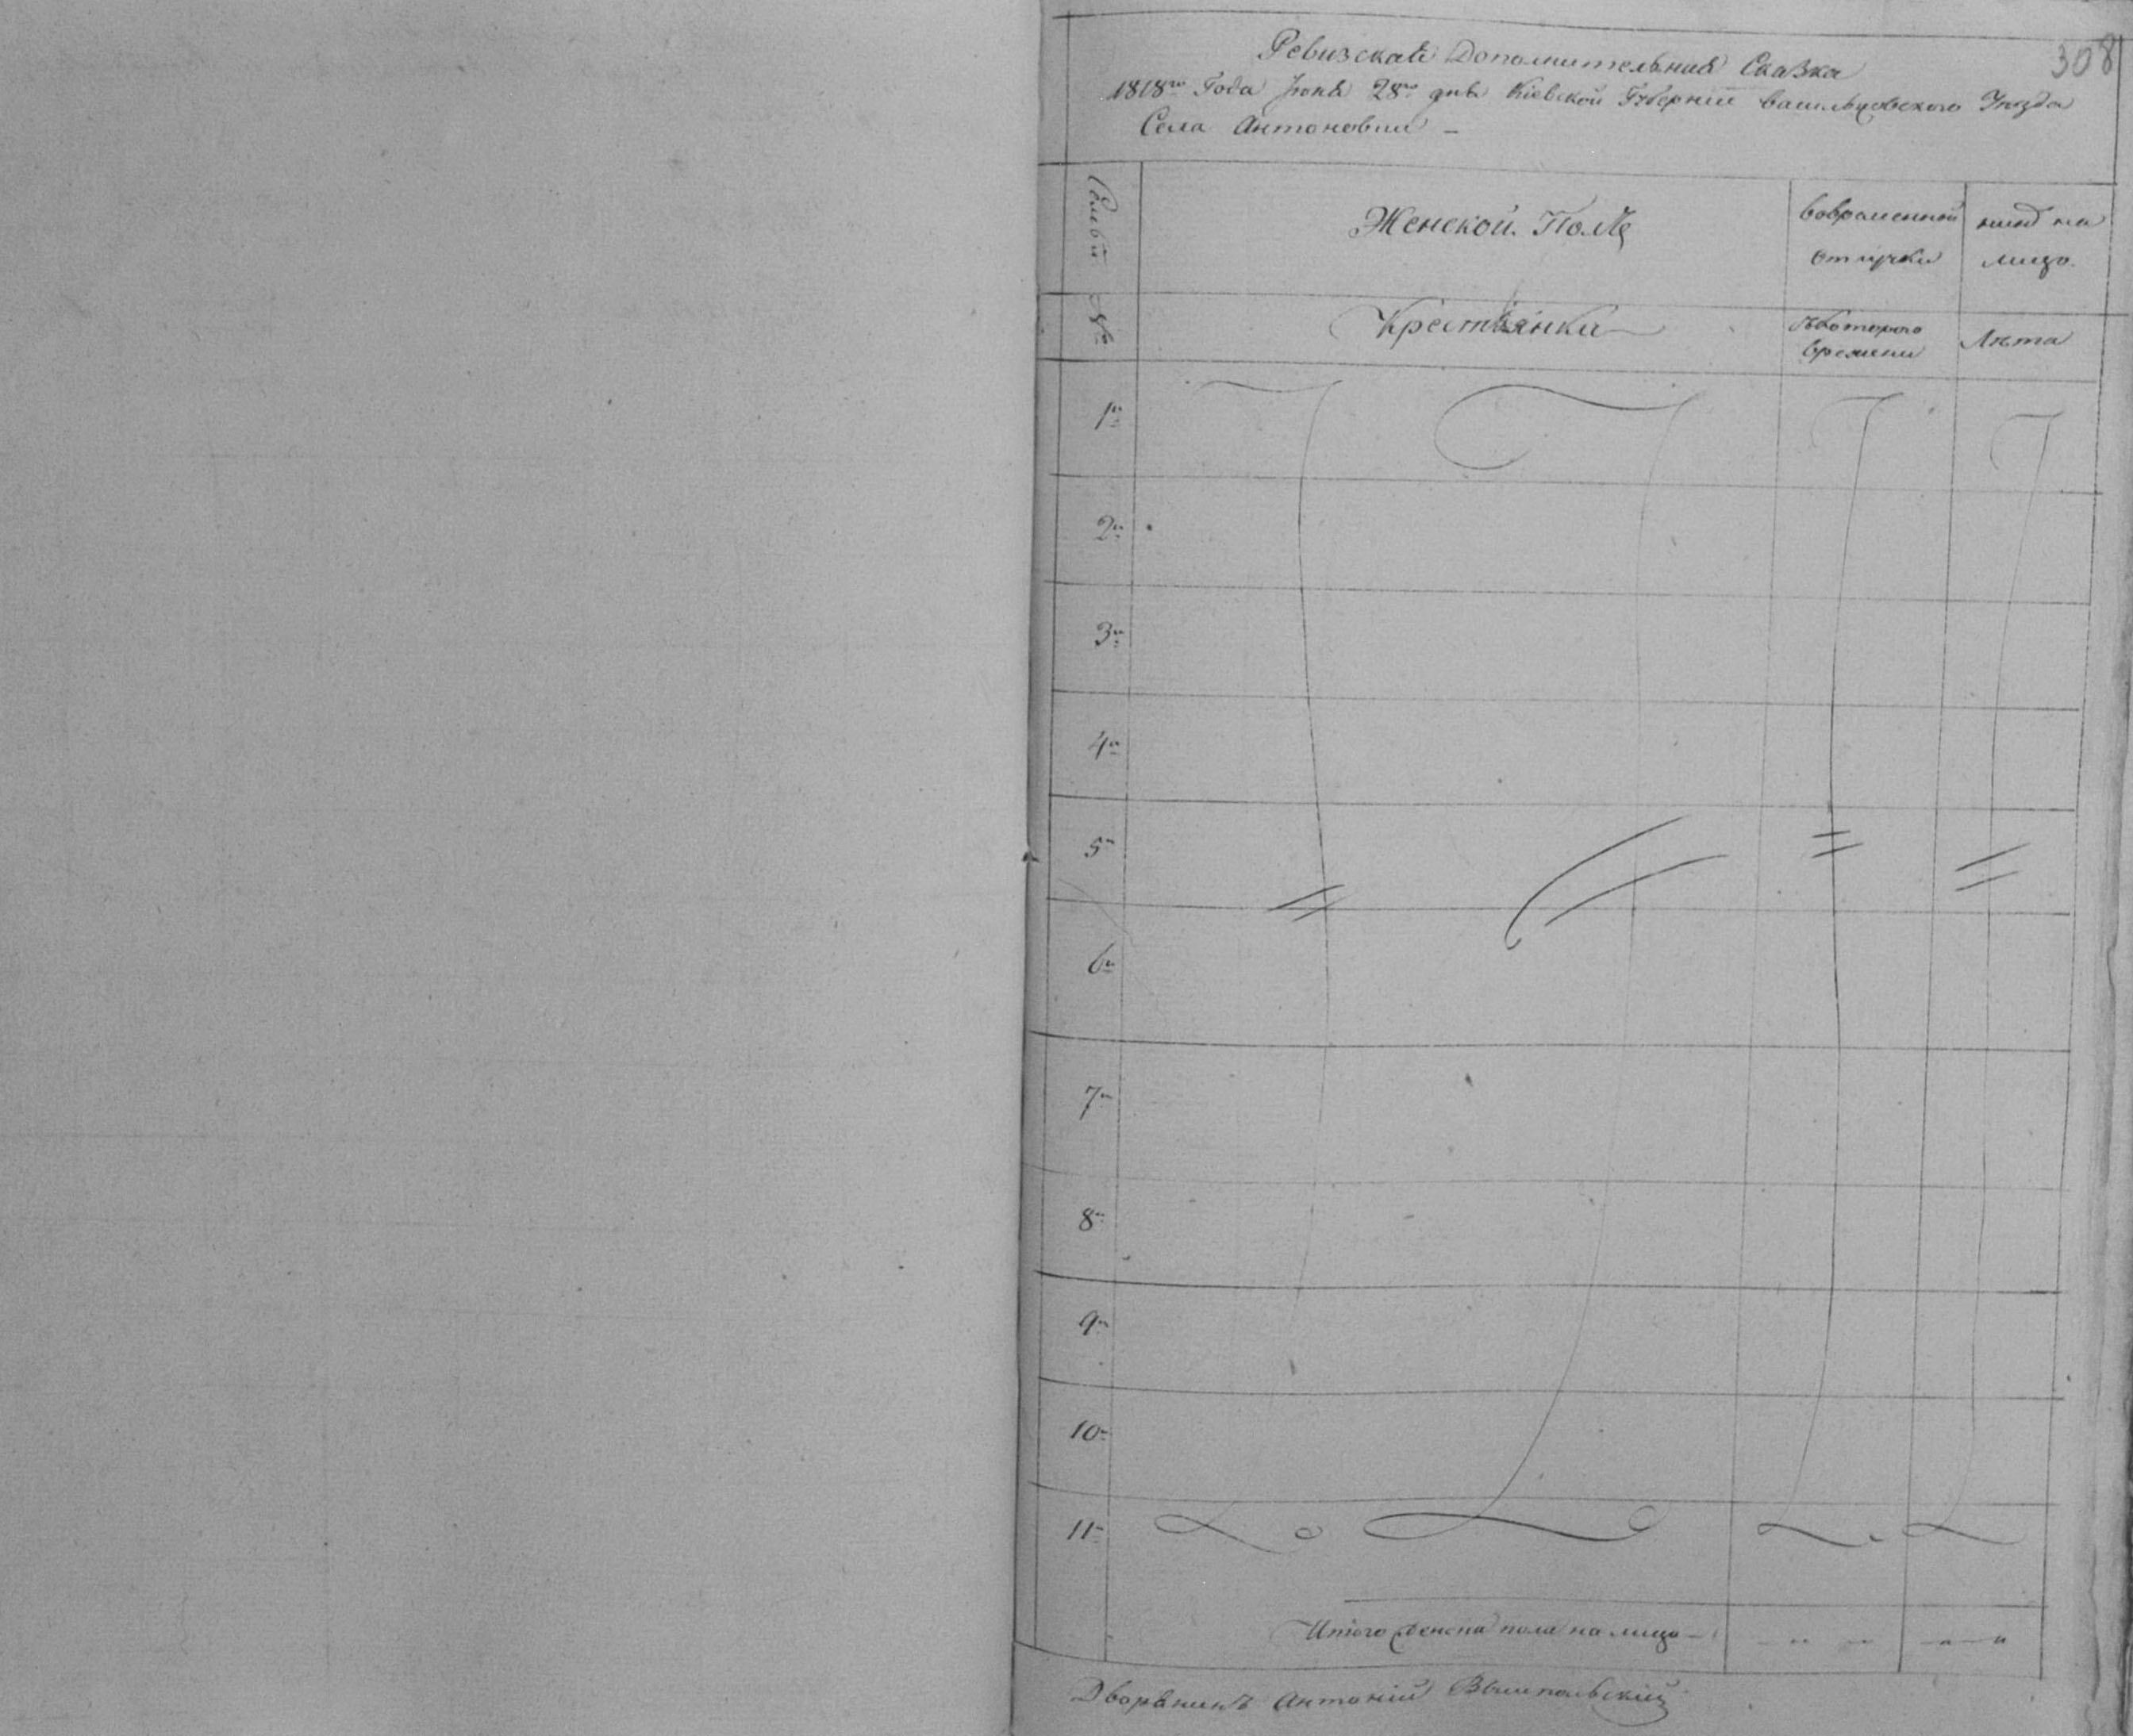 308
Ревизская Дополнительная Сказка
1818го Года Июня 28го дня Кіевской Губерніи васильковского Уезда
Села Антоновки –
Семьи
Женской Полъ
вовременной
отлучки
ниne на
лицо
№
Крестьянки
Съкоторого
времени
Лѣта
1я
2я
3я
4я
5я
6я
7я
8я
9я
10я
11я
Итого женска пола на лицо –
Дворянинъ Антоній